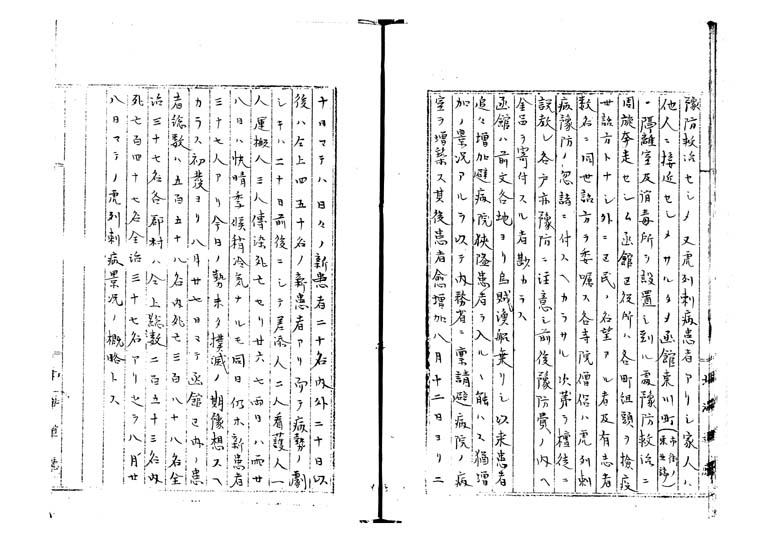 豫防救治セシメ又虎列刺病患者アリシ家人ハ
他人ニ接近セシメサルタメ函館東川町(市街ノ東出端)
ニ隔離室及消毒所ヲ設置シ到ル處豫防救治ニ
周旋奔走セシム函館区役所ハ各町組頭ヲ検疫
世話方トナシ外ニ区民ノ名望アル者及有志者
数名ニ同世話方ヲ委嘱ス各寺院僧侶ハ虎列刺
病豫防ノ忽諸ニ付スヘカラサル次第ヲ檀徒ニ
説教シ各戸亦豫防ニ注意シ前後豫防費ノ内ヘ
金円ヲ寄付スル者尠カラス
函館ハ前文各地ヨリ烏賊漁船乗リシ以来患者
追々増加避病院狭隘患者ヲ入ルヽ能ハス猶増
加ノ景况アルヲ以テ内務省ニ稟請避病院ノ病
室ヲ増築ス其後患者愈増加八月十二日ヨリ二
十日マテハ日々ノ新患者二十名内外二十日以
後ハ仝上四五十名ノ新患者アリ而テ病勢ノ劇
シキハ二十日前後ニシテ差添人二人看護人一
人運搬人三人傳染死亡セリ廿六七両日ハ雨廿
八日ハ快晴季候稍冷気ナルモ同日仍ホ新患者
三十七人アリ今日ノ勢未タ撲滅ノ期像想スヘ
カラス初發ヨリ八月廿七日マテ函館区内ノ患
者総数ハ五百五十八名内死亡三百八十八名全
治三十七名各郡村ハ仝上総数二百五十三名内
死亡百四十七名全治三十七名アリセラ八月廿
八日マテノ虎列刺病景况ノ概略トス